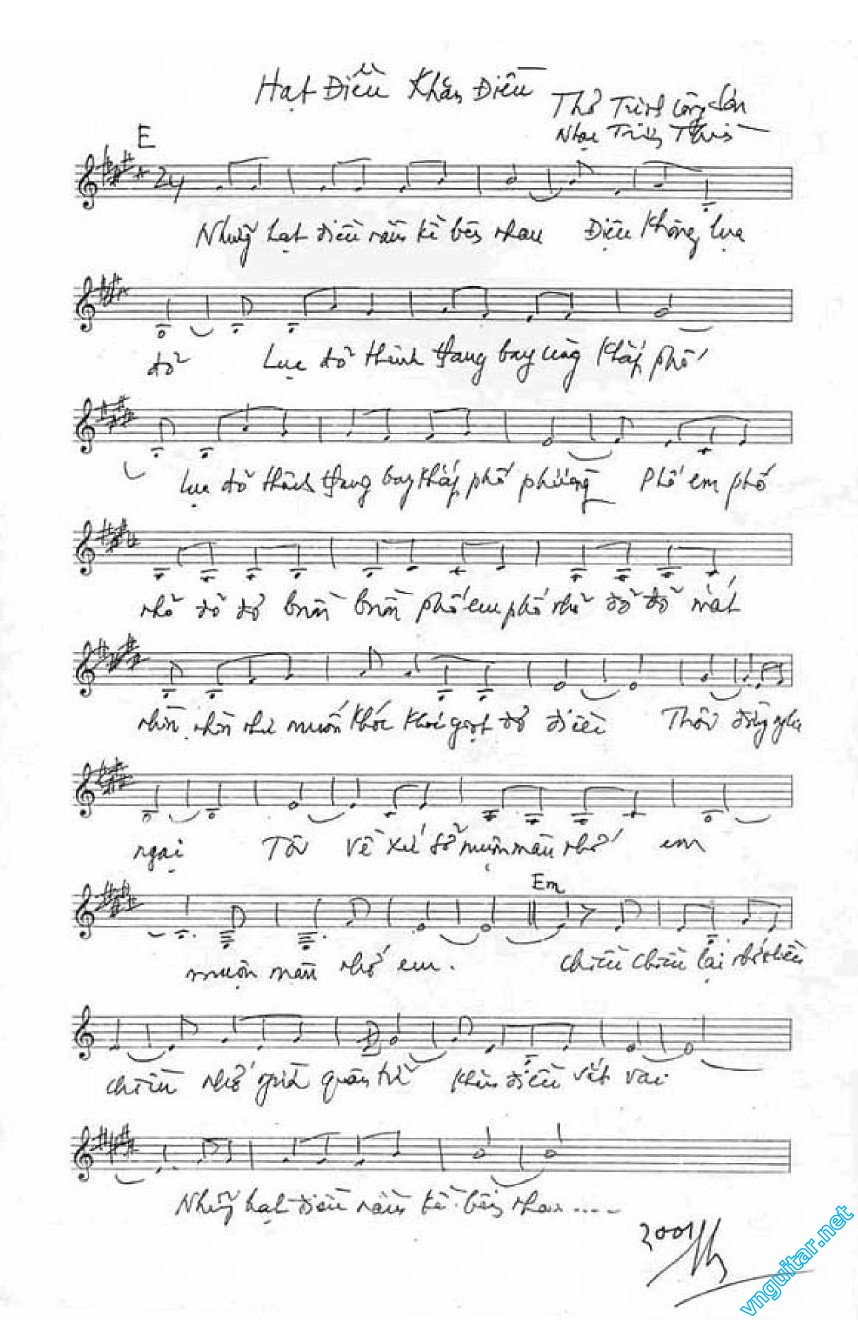 Hạt Điều Khăn Điều
Thơ Trịnh Công Sơn
Nhạc Trịnh
E
24
Những hạt điều nằm kề bên nhau Điệu không lụa
đỏ Lụa đỏ thành đang bay cùng khắp phố
lụa đỏ thành đang bay khắp phố phường Phố em phố
nhỏ đỏ đỏ buồn buồn phố em phố nhỏ đỏ đỏ mắt
nhìn nhìn như muốn khóc khóc giọt đỏ điều Thôi đừng nghi
ngại Tôi về xứ sở mượn màu nhớ em
mượn màu nhớ em.
Em
chiều chiều lại nhớ chiều
chiều nhớ quán khăn điều vắt vai
Những hạt điều nằm kề bên nhau ....
2001
vnguitar.net